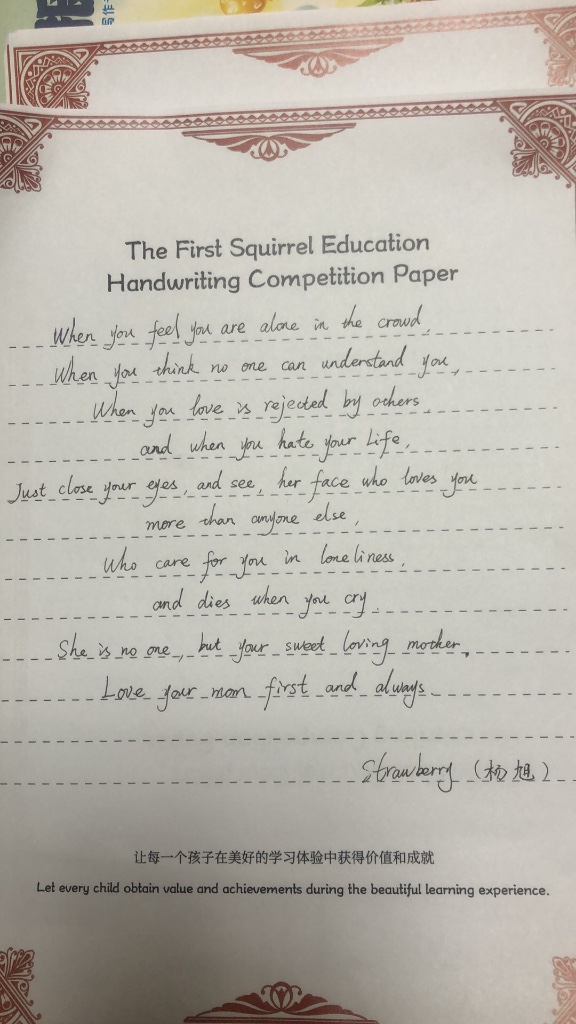 写作
The First Squirrel Education
Handwriting Competition Paper
When you feel you are alone in the crowd,
When you think no one can understand you,
When you love is rejected by others,
and when you hate your life,
Just close your eyes, and see, her face who loves you
more than anyone else,
Who care for you in loneliness,
and dies when you cry.
She is no one, but your sweet loving mother.
Love your mom first and always.
Strawberry (杨旭)
让每一个孩子在美好的学习体验中获得价值和成就
Let every child obtain value and achievements during the beautiful learning experience.